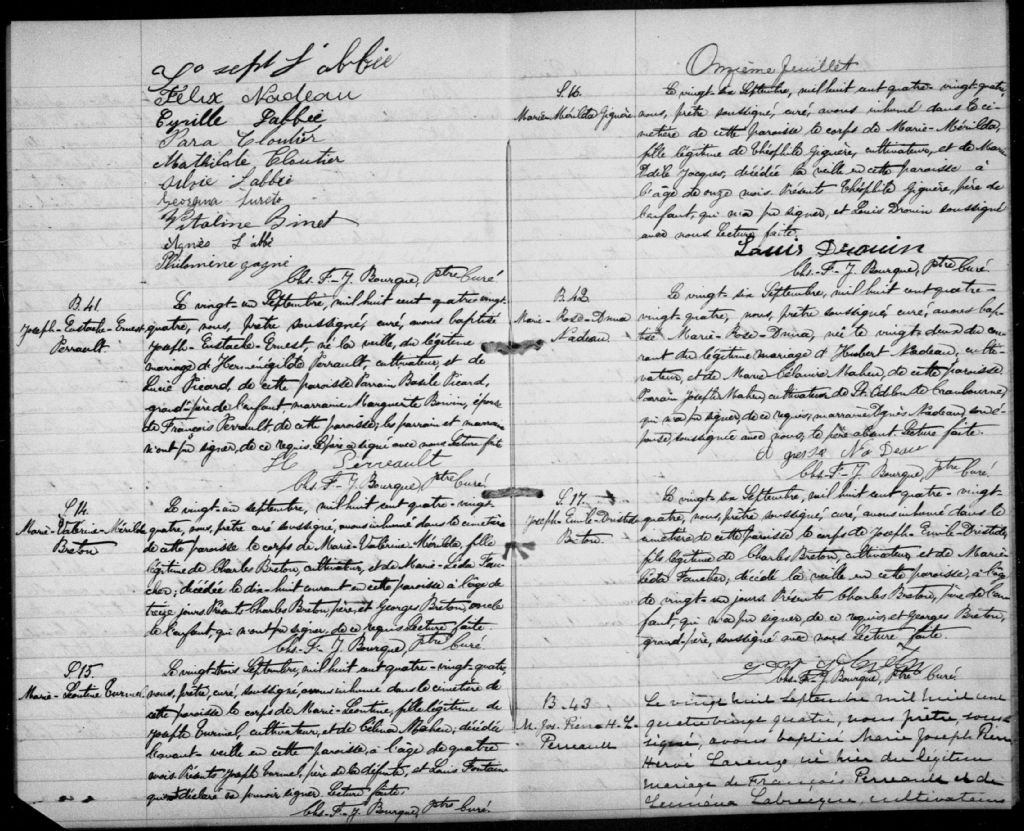 Joseph L'abbée
Félix Nadeau
Cyrille Labbée
Zara Cloutier
Mathilde Cloutier
Silvie L'abbé
Georgina
Vitaline Binet
Agnès L'abbé
Philomine gagné
Chs. F. J. Bourque, ptre Curé
B. 41
Joseph-Eustache-Ernest
Perrault
Le vingt un Septembre, mil huit cent quatre vingt
quatre, nous, prêtre soussigné, curé, avons baptisé
Joseph-Eustache-Ernest, né la veille, du légitime
mariage d'Herménégilde Perrault, cultivateur, et de
Lucie Picard, de cette paroisse Parrain Basile Picard,
grand-père de l'enfant, marraine Marguerite Boivin, épouse
de François Perrault de cette paroisse, les parrain et marraine
n'ont pu signer, de ce requis. Le père a signé avec nous Lecture faite
H Perreault
Chs. F. J. Bourque, ptre Curé
S. 14.
Marie-Valérine-Mérilda
Breton
Le vingt-un septembre, mil huit cent quatre-vingt-
quatre, nous, prêtre curé soussigné, avons inhumé dans le cimetière
de cette paroisse le corps de Marie-Valérine Mérilda, fille
légitime de Charles Breton, cultivateur, et de Marie-Léda Fau-
cher, décédée le dix-huit courant en cette paroisse à l'âge de
treize jours Présents Charles Breton, père, et Georges Breton, oncle
de l'enfant, qui n'ont pu signer, de ce requis Lecture faite.
Chs. F. J. Bourque, ptre Curé
S. 15
Marie-Léontine Turmel
Le vingt-trois Septembre, mil huit cent quatre-vingt-quatre,
nous, prêtre, curé, soussigné, avons inhumé dans le cimetière de
cette paroisse le corps de Marie-Léontine, fille légitime de
Joseph Turmel, cultivateur, et de Célina Maheu, décédée
l'avant-veille en cette paroisse, à l'âge de quatre
mois. Présents Joseph Turmel, père de la défunte, et Louis Fontaine
qui ont déclaré ne pouvoir signer Lecture faite.
Chs. F. J. Bourque, ptre Curé.
Onzième feuillet
S. 16.
Marie-Mérilda Giguère
Le vingt-six Septembre, mil huit cent quatre-vingt-quatre,
nous, prêtre soussigné, curé, avons inhumé dans le ci-
metière de cette paroisse le corps de Marie-Mérilda,
fille légitime de Théophile Giguère, cultivateur, et de Marie
Adèle Jacques, décédée la veille en cette paroisse à
l'âge de onze mois. Présents Théophile Giguère, père de
l'enfant, qui n'a pu signer, et Louis Drouin soussigné
avec nous Lecture faite.
Louis Drouin
Chs. F. J. Bourque, ptre Curé
B. 42
Marie-Rose-Anna
Nadeau
Le vingt six Septembre, mil huit cent quatre-
vingt-quatre, nous, prêtre soussigné, curé, avons bap-
tisé Marie-Rose-Anna, née le vingt-deux du cou-
rant du légitime mariage d'Hubert Nadeau, culti-
vateur, et de Marie Célanire Maheu, de cette paroisse.
Parrain Joseph Maheu, cultivateur de St. Odilon de Cranbourne,
qui n'a pu signer, de ce requis, marraine Agnès Nadeau, son é-
pouse, soussignée avec nous, le père absent. Lecture faite.
Chs. F. J. Bourque, ptre Curé
S. 17.
Joseph-Emile-Aristide
Breton
Le vingt-six Septembre, mil huit cent quatre-vingt-
quatre, nous, prêtre, soussigné, curé, avons inhumé dans le
cimetière de cette paroisse le corps de Joseph-Emile-Aristide,
fils légitime de Charles Breton, cultivateur, et de Marie-
Léda Faucher, décédé la veille en cette paroisse, à l'âge
de vingt-un jours. Présents Charles Breton, père de l'en-
fant, qui n'a pu signer, de ce requis, et Georges Breton,
grand-père, soussigné avec nous Lecture faite.
Chs. F. J. Bourque, Ptre Curé.
B. 43
M. Jos. Pierre H. L.
Perreault
Le vingt huit Septembre mil huit cent
quatrevingt quatre, nous prêtre sous-
signé, avons baptisé Marie Joseph Pierre
Hervé Laurenze né hier du légitime
mariage de François Perreault et de
Labrecque, cultivateurs